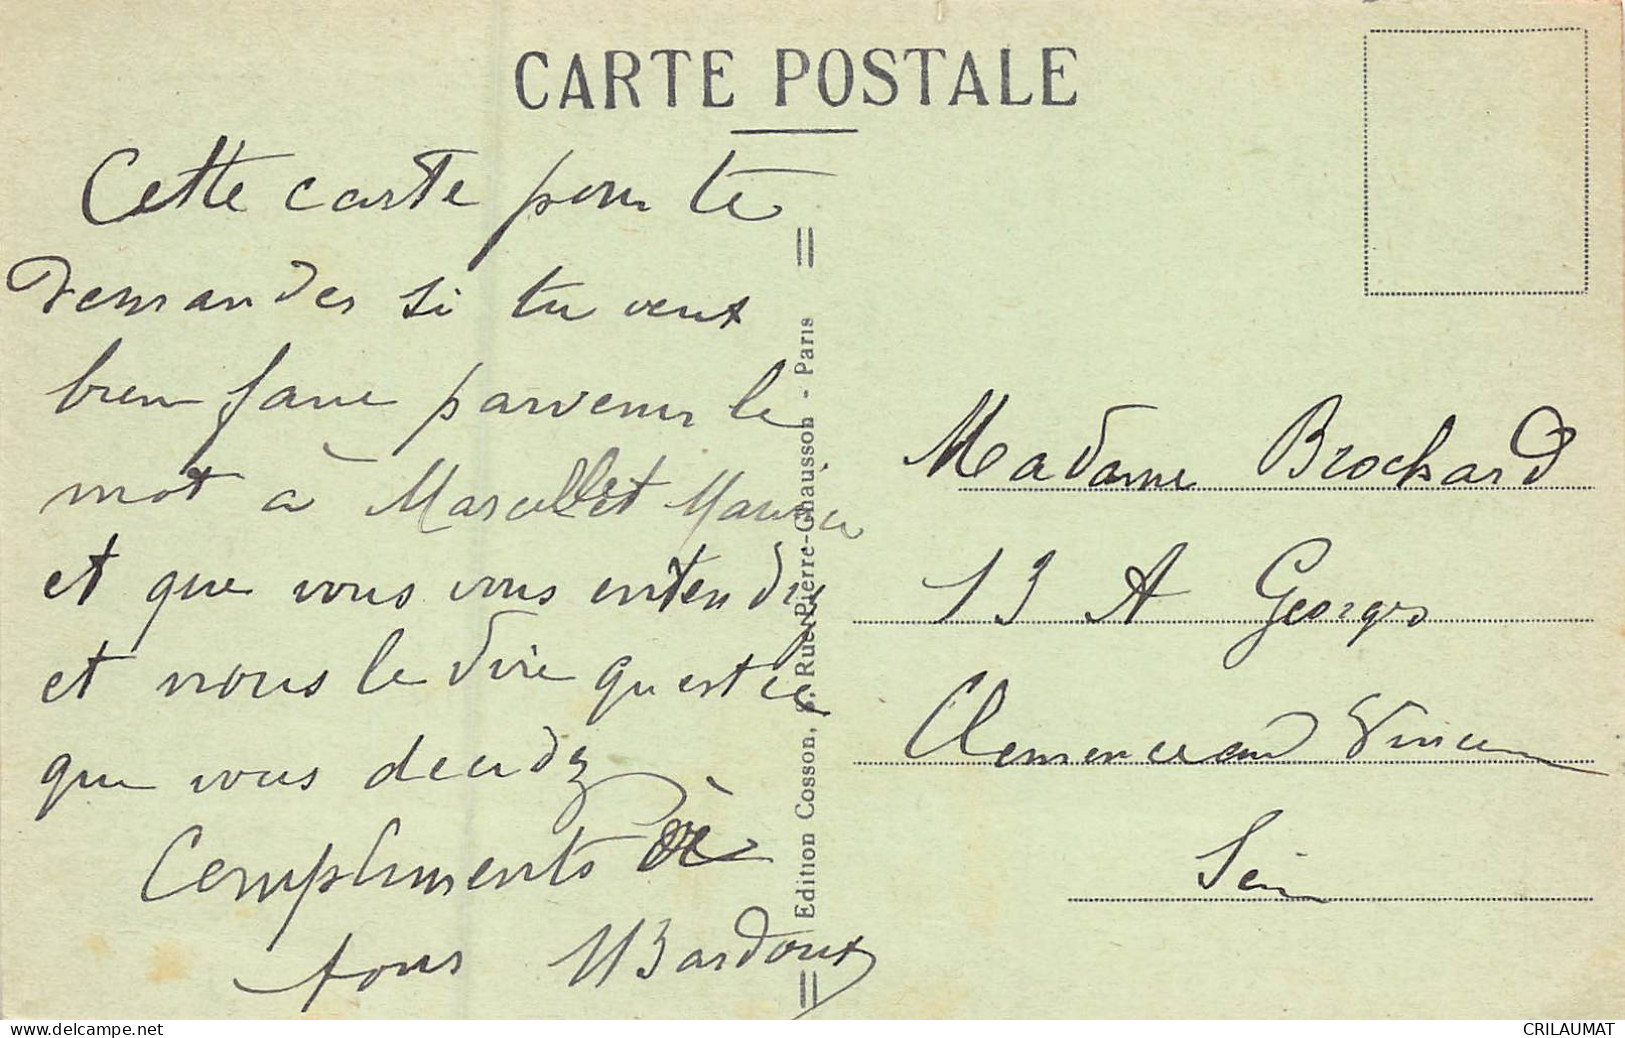 CARTE POSTALE
Cette carte pour te
demander si tu veux
bien faire parvenir le
mot à Marcel et Maurice
et que vous vous entendiez
et nous le dire qu est ce
que vous decidez
Compliments à
tous MBardoux
Edition Cosson, Rue Pierre-Chausson - Paris
Madame Brochard
13 A Georges
Clemenceau Vincennes
Seine
www.delcampe.net
CRILAUMAT